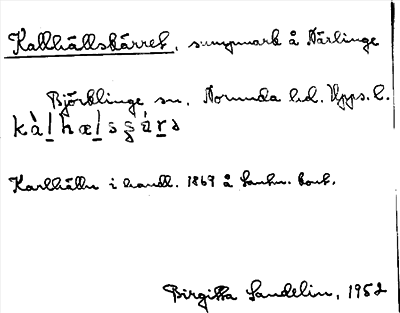 Kallhällskärret, sumpmark å Närlinge
Björklinge sn, Norunda hd. Upps. l.
Karlhälln i handl. 1869 å lantm. kont.
Birgitta Sandelin, 1952